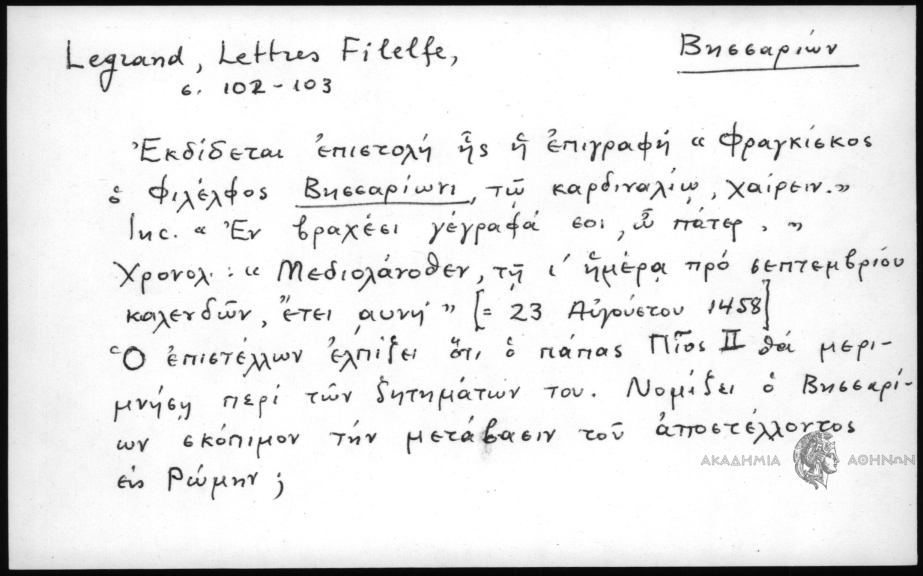 Legrand, Lettres Filelfe,
Βησσαρίων
σ. 102-103
Ἐκδίδεται ἐπιστολή ἧς ἡ ἐπιγραφή « Φραγκίσκος
ὁ Φιλέλφος Βησσαρίωνι, τῷ καρδιναλίῳ, χαίρειν.»
Inc. « Ἐν βραχέσι γέγραφά σοι, ὦ πάτερ. »
Χρονολ.: « Μεδιολάνοθεν, τῇ ι' ἡμέρᾳ πρό σεπτεμβρίου
καλενδῶν, ἔτει ͵αυνη' » [= 23 Αὐγούστου 1458]
Ὁ ἐπιστέλλων ἐλπίζει ὅτι ὁ πάπας Πῖος II θά μερι-
μνήσῃ περί τῶν ζητημάτων του. Νομίζει ὁ Βησσαρί-
ων σκόπιμον τήν μετάβασιν τοῦ ἀποστέλλοντος
εἰς Ρώμην;
ΑΚΑΔΗΜΙΑ ΑΘΗΝΩΝ